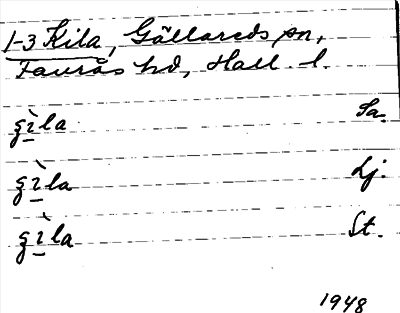 1-3 Kila, Gällareds sn,
Faurås hd, Hall. l.
ʂì̱la Sa.
ʂì̱la Lj.
ʂì̱la St.
1948